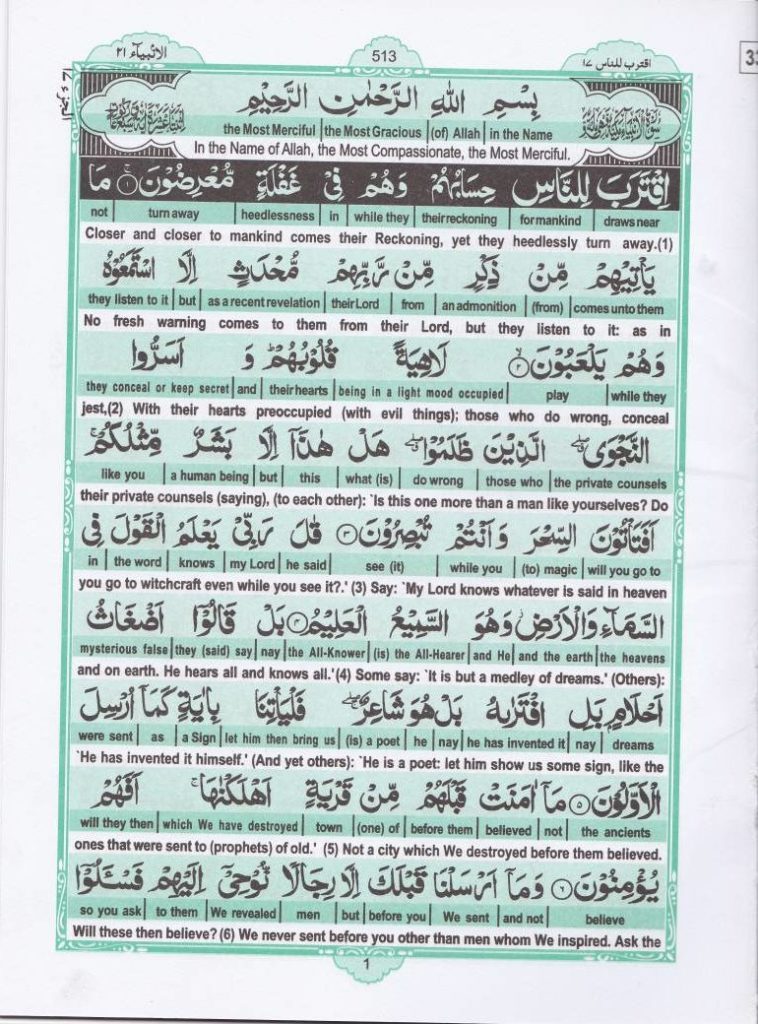 اقترب للناس ١٧ 513 الانبیآء ٢١
بِسْمِ اللهِ الرَّحْمٰنِ الرَّحِيْمِ
the Most Merciful | the Most Gracious | (of) Allah | in the Name
In the Name of Allah, the Most Compassionate, the Most Merciful.
اِقْتَرَبَ لِلنَّاسِ حِسَابُهُمْ وَهُمْ فِيْ غَفْلَةٍ مُّعْرِضُوْنَ ۝١ مَا
not | turn away | heedlessness | in | while they | their reckoning | for mankind | draws near
Closer and closer to mankind comes their Reckoning, yet they heedlessly turn away.(1)
يَاْتِيْهِمْ مِّنْ ذِكْرٍ مِّنْ رَّبِّهِمْ مُّحْدَثٍ اِلَّا اسْتَمَعُوْهُ
they listen to it | but | as a recent revelation | their Lord | from | an admonition | (from) | comes unto them
No fresh warning comes to them from their Lord, but they listen to it: as in
وَهُمْ يَلْعَبُوْنَ ۝٢ لَاهِيَةً قُلُوْبُهُمْ ؕ وَ اَسَرُّوا
they conceal or keep secret | and | their hearts | being in a light mood occupied | play | while they
jest,(2) With their hearts preoccupied (with evil things): those who do wrong, conceal
النَّجْوَى ۖ الَّذِيْنَ ظَلَمُوْا ۖ هَلْ هٰذَاۤ اِلَّا بَشَرٌ مِّثْلُكُمْ ۚ
like you | a human being | but | this | what (is) | do wrong | those who | the private counsels
their private counsels (saying), (to each other): `Is this one more than a man like yourselves? Do
اَفَتَاْتُوْنَ السِّحْرَ وَاَنْتُمْ تُبْصِرُوْنَ ۝٣ قٰلَ رَبِّيْ يَعْلَمُ الْقَوْلَ فِي
in | the word | knows | my Lord | he said | see (it) | while you | (to) magic | will you go to
you go to witchcraft even while you see it?.' (3) Say: `My Lord knows whatever is said in heaven
السَّمَآءِ وَالْاَرْضِ ؗ وَهُوَ السَّمِيْعُ الْعَلِيْمُ ۝٤ بَلْ قَالُوْۤا اَضْغَاثُ
mysterious false | they (said) say | nay | the All-Knower | (is) the All-Hearer | and He | and the earth | the heavens
and on earth. He hears all and knows all.'(4) Some say: `It is but a medley of dreams.' (Others):
اَحْلَامٍۭ بَلِ افْتَرٰىهُ بَلْ هُوَ شَاعِرٌ ۖ فَلْيَاْتِنَا بِاٰيَةٍ كَمَاۤ اُرْسِلَ
were sent | as | a Sign | let him then bring us | (is) a poet | he | nay | he has invented it | nay | dreams
`He has invented it himself.' (And yet others): `He is a poet: let him show us some sign, like the
الْاَوَّلُوْنَ ۝٥ مَاۤ اٰمَنَتْ قَبْلَهُمْ مِّنْ قَرْيَةٍ اَهْلَكْنٰهَا ۚ اَفَهُمْ
will they then | which We have destroyed | town | (one) of | before them | believed | not | the ancients
ones that were sent to (prophets) of old.' (5) Not a city which We destroyed before them believed.
يُؤْمِنُوْنَ ۝٦ وَمَاۤ اَرْسَلْنَا قَبْلَكَ اِلَّا رِجَالًا نُّوْحِيْۤ اِلَيْهِمْ فَسْـَٔلُوْۤا
so you ask | to them | We revealed | men | but | before you | We sent | and not | believe
Will these then believe? (6) We never sent before you other than men whom We inspired. Ask the
1